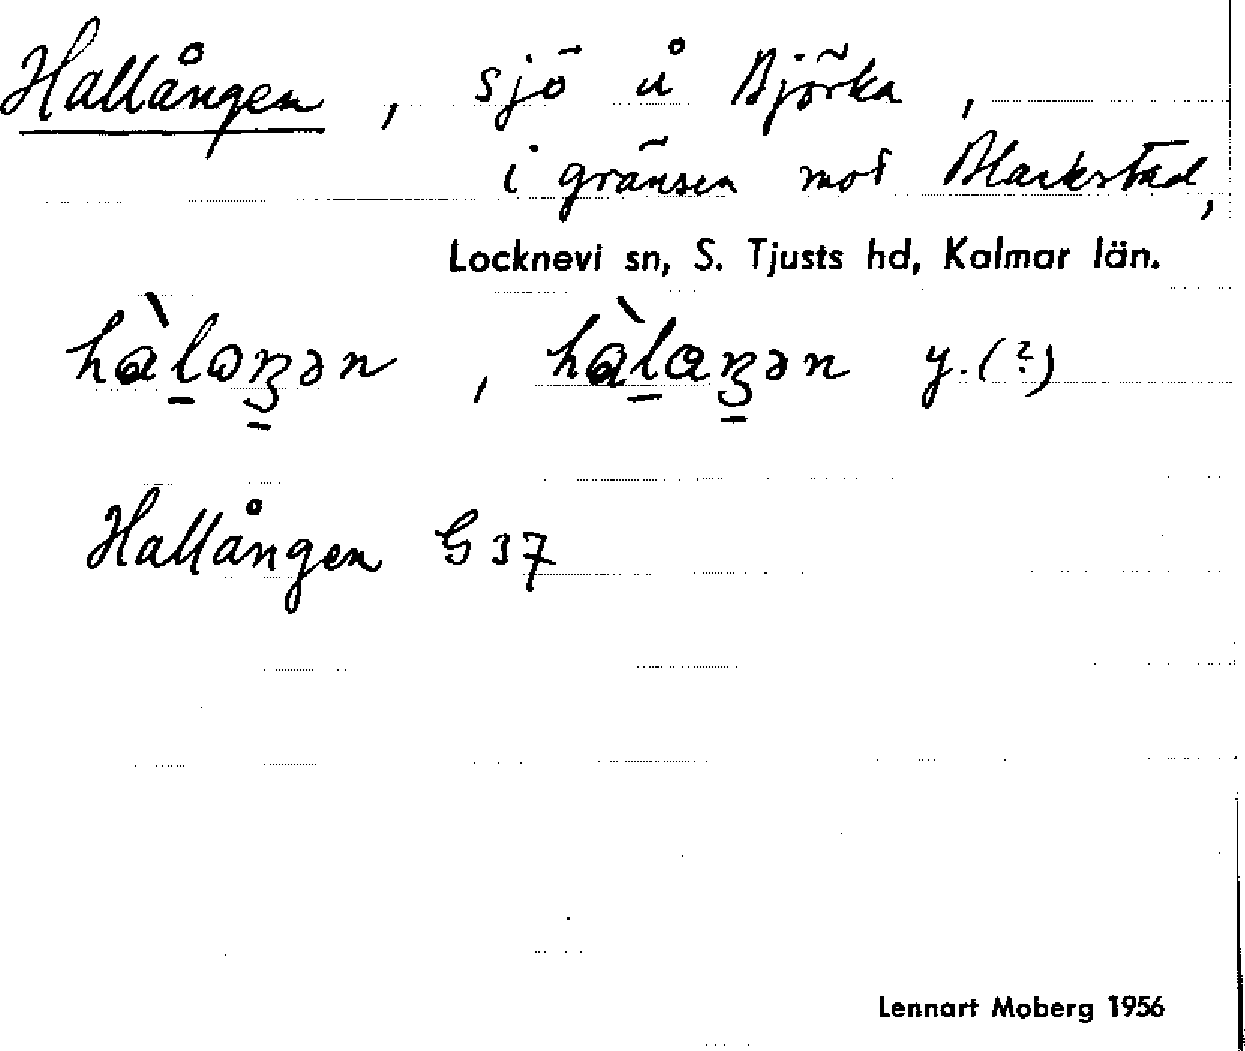 Hallången, sjö å Björka,
i gränsen mot Blackstad,
Locknevi sn, S. Tjusts hd, Kalmar län.
hàlaŋən, hàlaŋən y.(?)
Hallången G 37
Lennart Moberg 1956